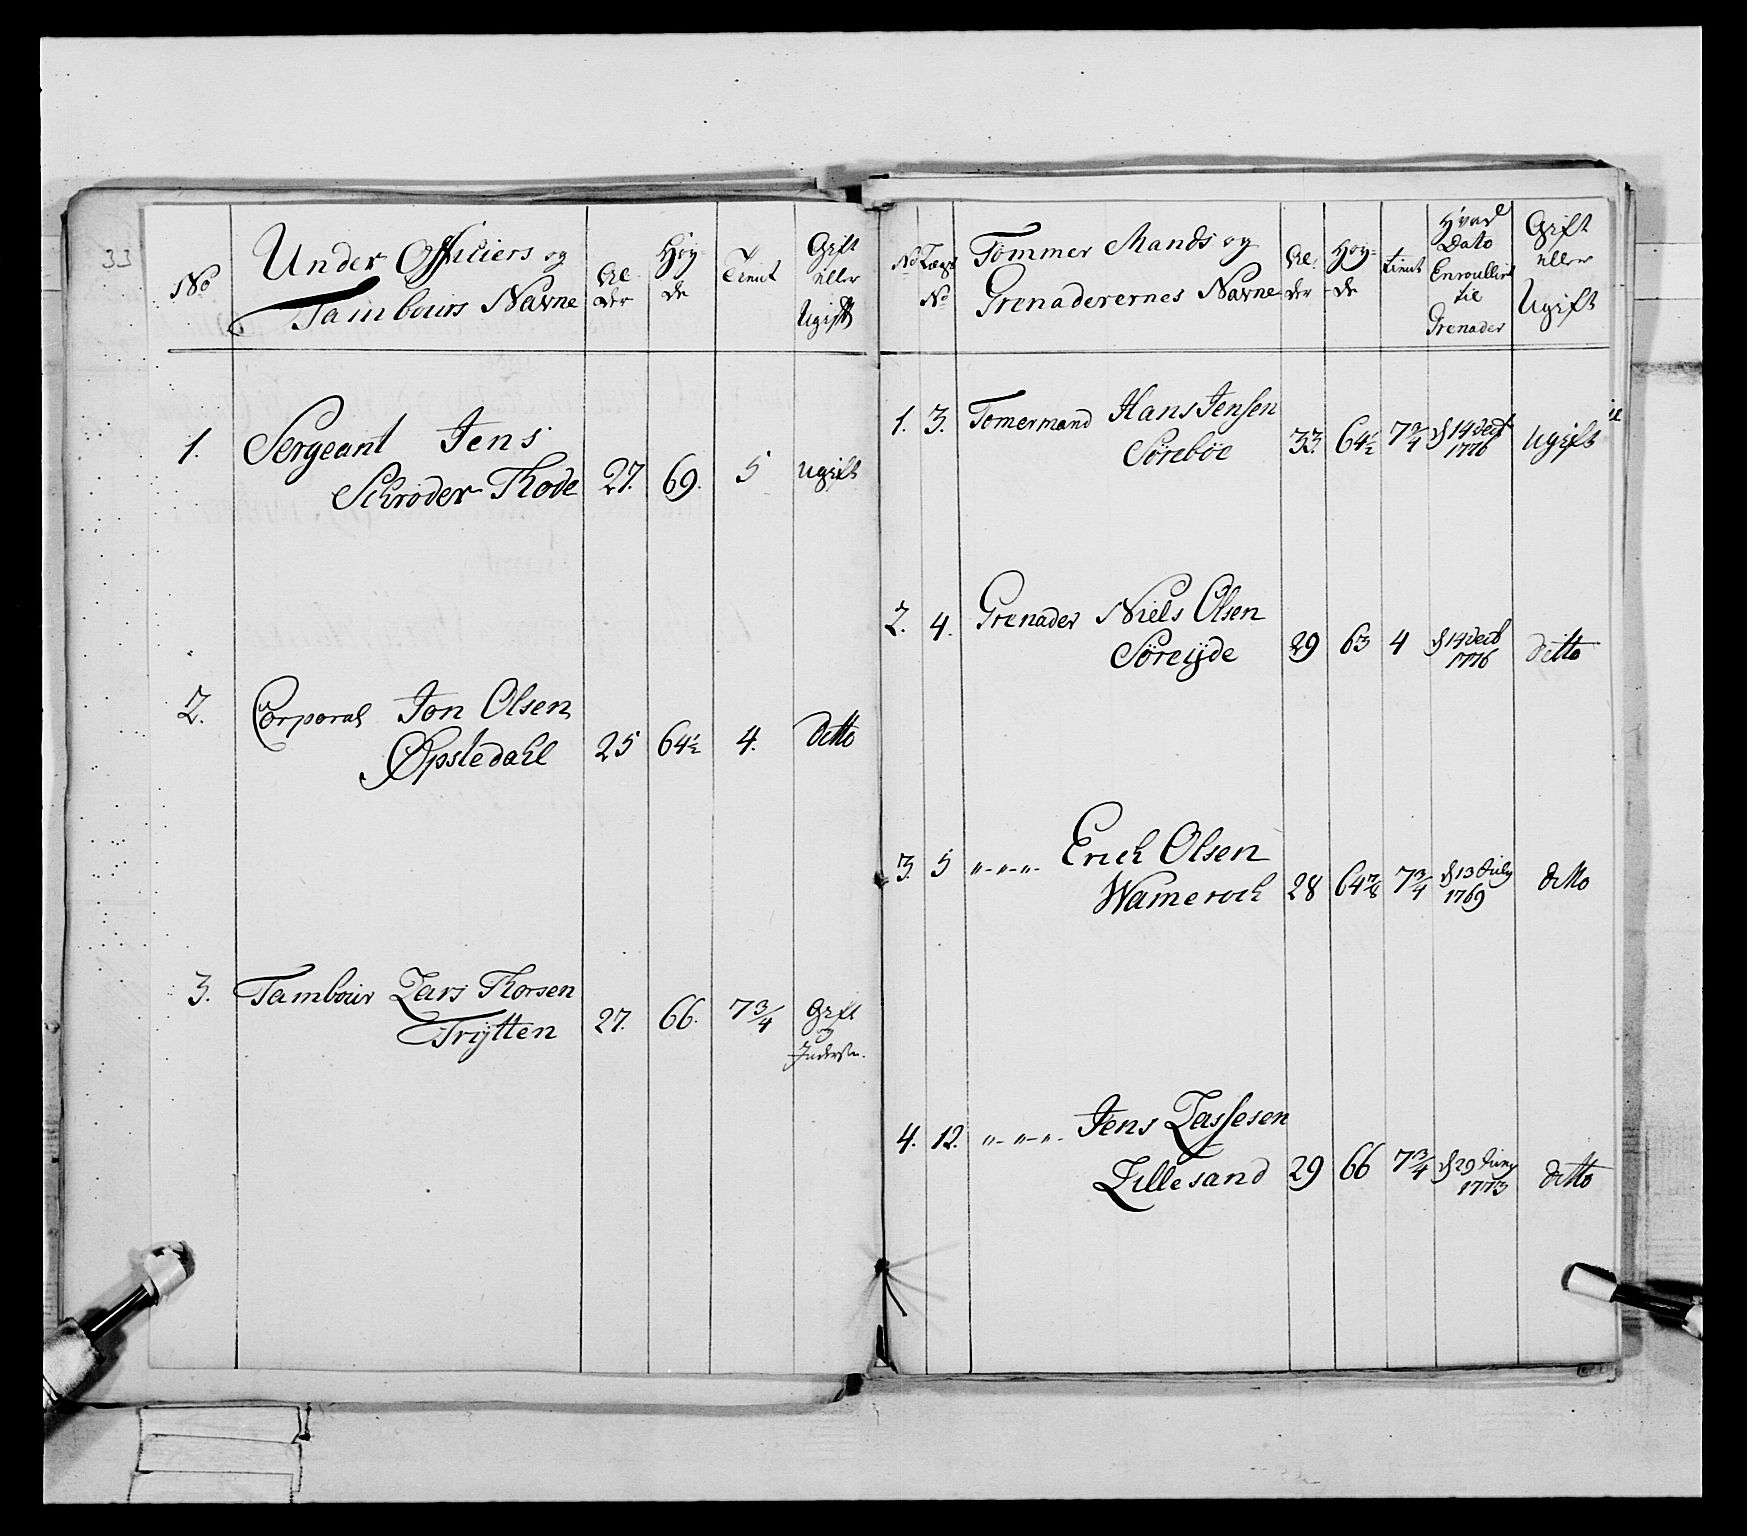 33
No
Under Officiers og
Tambours Navne
Al-
der
Høy-
de
Tient
Gift
eller
Ugift
1.
Sergeant Jens
Schrøder Thode
27.
69.
5
Ugift
2.
Corporal Jon Olsen
Opstedahl
25
64½
4.
ditto
3.
Tambour Lars Thorsen
Trÿtten
27.
66.
7¾
Gift
og
Inderste.
No
Lægs
No
Tømmer Mands og
Grenaderernes Navne
Al-
der
Høy-
de
tient
Hvad
Dato
Enroullirt
til
Grenader
Gift
eller
Ugift
1. 3. Tømermand Hans Jensen
Sørebøe
33.
64½
7¾
d 14 decb
1776
Ugift
2. 4. Grenader Niels Olsen
Søreÿde
29
63
4
d 14 decb
1776
ditto
3. 5 "-"-"- Erich Olsen
Wamerock
28
64⅞
7¾
d 13 July
1769
ditto
4. 12. "-"-"- Jens Lassesen
Lillesand
29
66
7¾
d 29 Juny
1773
ditto